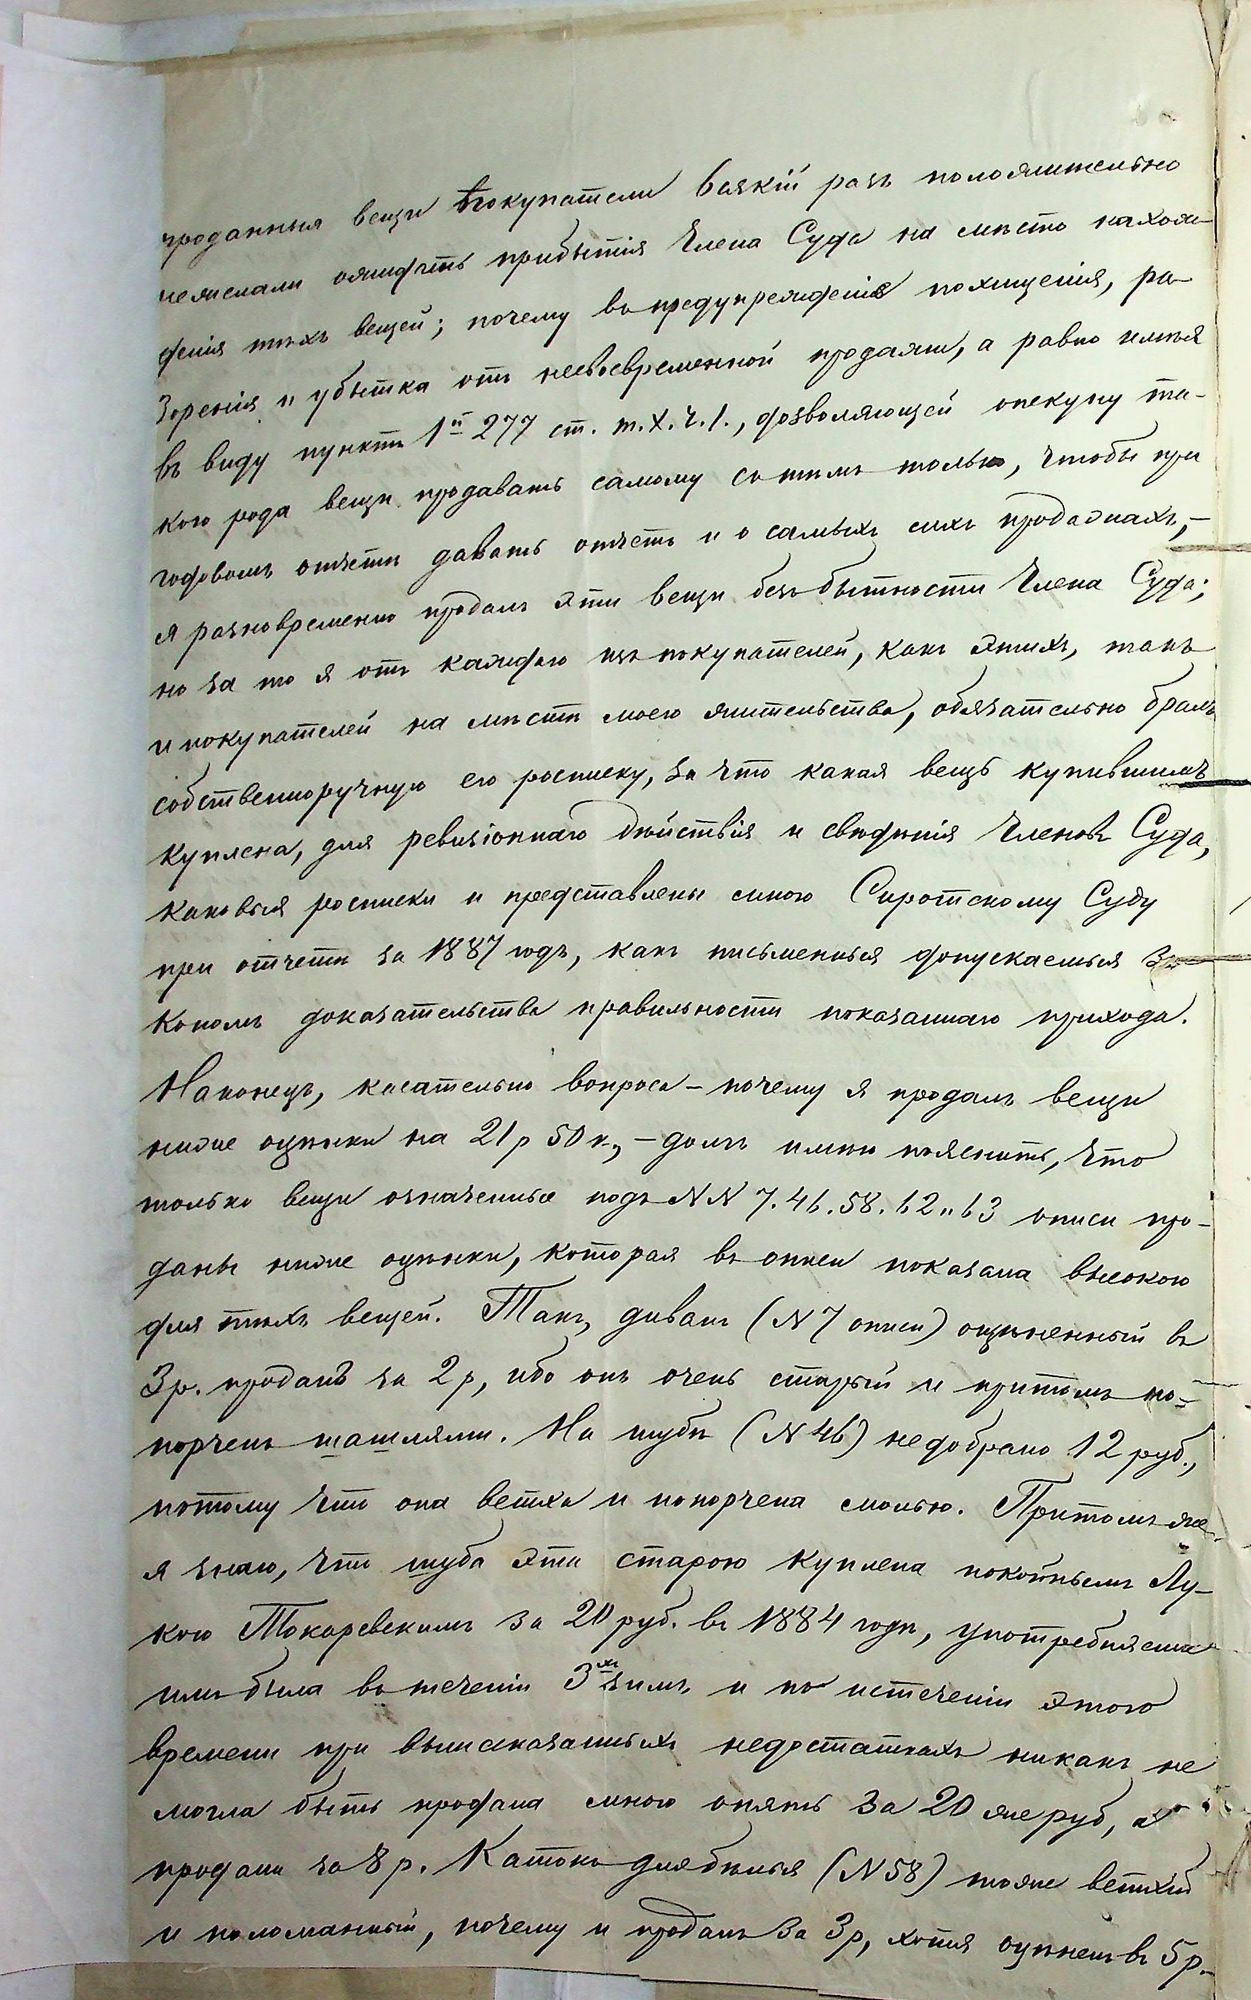 проданныя вещи покупатели всякій разъ положительно
нежелали ожидать прибытія Члена Суда на мѣсто нахож-
денія тѣхъ вещей; почему въ предупрежденіе похищенія, ра-
зоренія и убытка отъ несвоевременной продажи, а равно имѣя
въ виду пунктъ 1й 277 ст. т. X. ч. 1., дозволяющей опекуну та-
кого рода вещи продавать самому съ тѣмъ только, чтобы при
годовомъ отчетѣ давать отчетъ и о самыхъ сихъ продажахъ,–
я разновременно продалъ эти вещи безъ бытности Члена Суда;
но за то я отъ каждаго изъ покупателей, какъ этихъ, такъ
и покупателей на мѣстѣ моего жительства, обязательно бралъ
собственноручную его росписку, за что какая вещь купившимъ
куплена, для ревизіоннаго дѣйствія и свѣдѣнія Членовъ Суда,
каковыя росписки и представлены мною Сиротскому Суду
при отчетѣ за 1887 годъ, какъ письменныя допускаемыя за-
кономъ доказательства правильности показаннаго прихода.
Наконецъ, касательно вопроса – почему я продалъ вещи
ниже оцѣнки на 21 р 50 к., – долгъ имѣю пояснить, что
только вещи означенные подъ NN 7. 46. 58. 62 и 63 описи про-
даны ниже оцѣнки, которая въ описи показана высокою
для тѣхъ вещей. Такъ, диванъ (N 7 описи) оцѣненный въ
3 р. проданъ за 2 р, ибо онъ очень старый и притомъ по-
порченъ шашлями. На шубѣ (N 46) недобрано 12 руб.,
потому что она ветха и попорчена молью. Притомъ же
я знаю, что шуба эта старою куплена покойнымъ Лу-
кою Токаревскимъ за 20 руб. въ 1884 годѣ, употребляема
имъ была въ теченіи 3хъ зимъ и по истеченіи этого
времени при вышесказанныхъ недостаткахъ никакъ не
могла быть продана мною опять за 20 же руб, а
продана за 8 р. Катокъ для бѣлья (N 58) тоже ветхій
и поломанный, почему и проданъ за 3 р, хотя оцѣненъ въ 5 р.